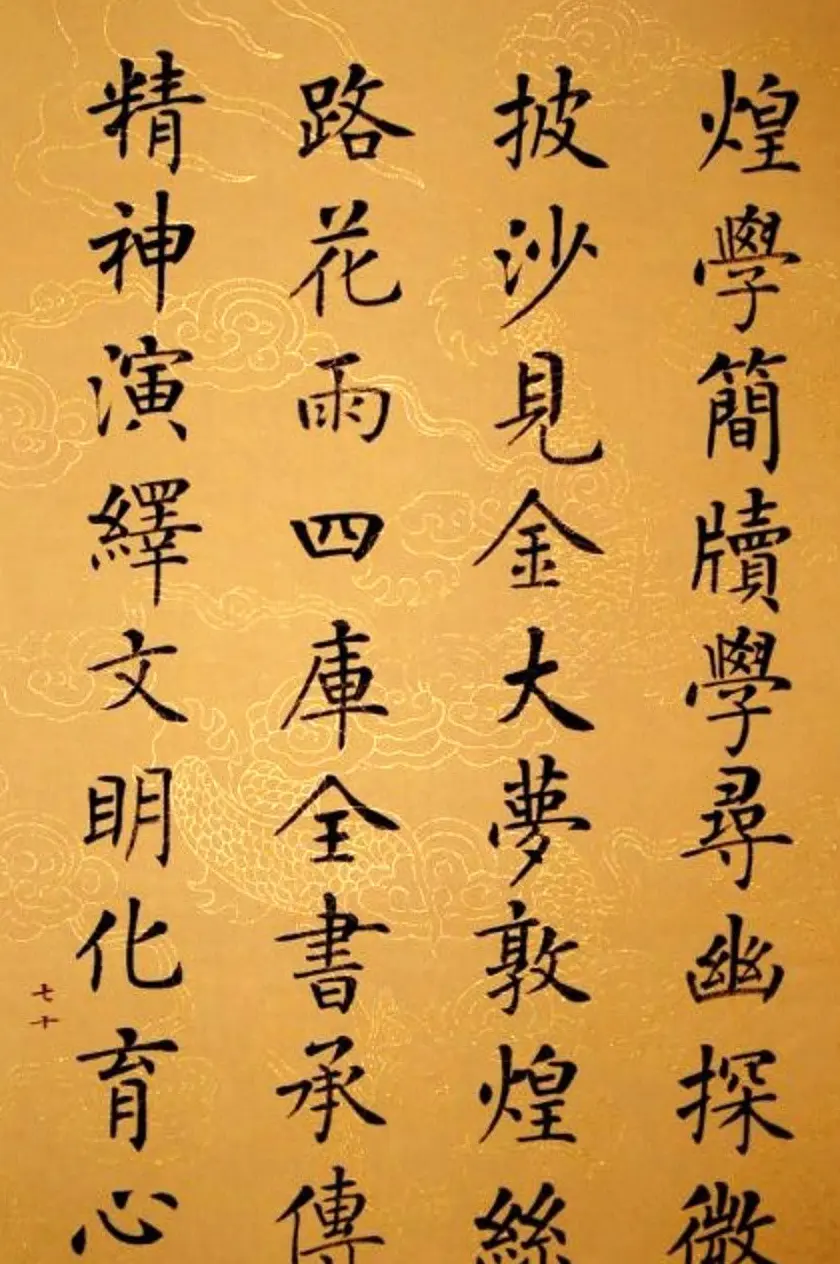 煌學簡牘學尋幽探微
披沙見金大夢敦煌絲
路花雨四庫全書承傳
精神演繹文明化育心
七十